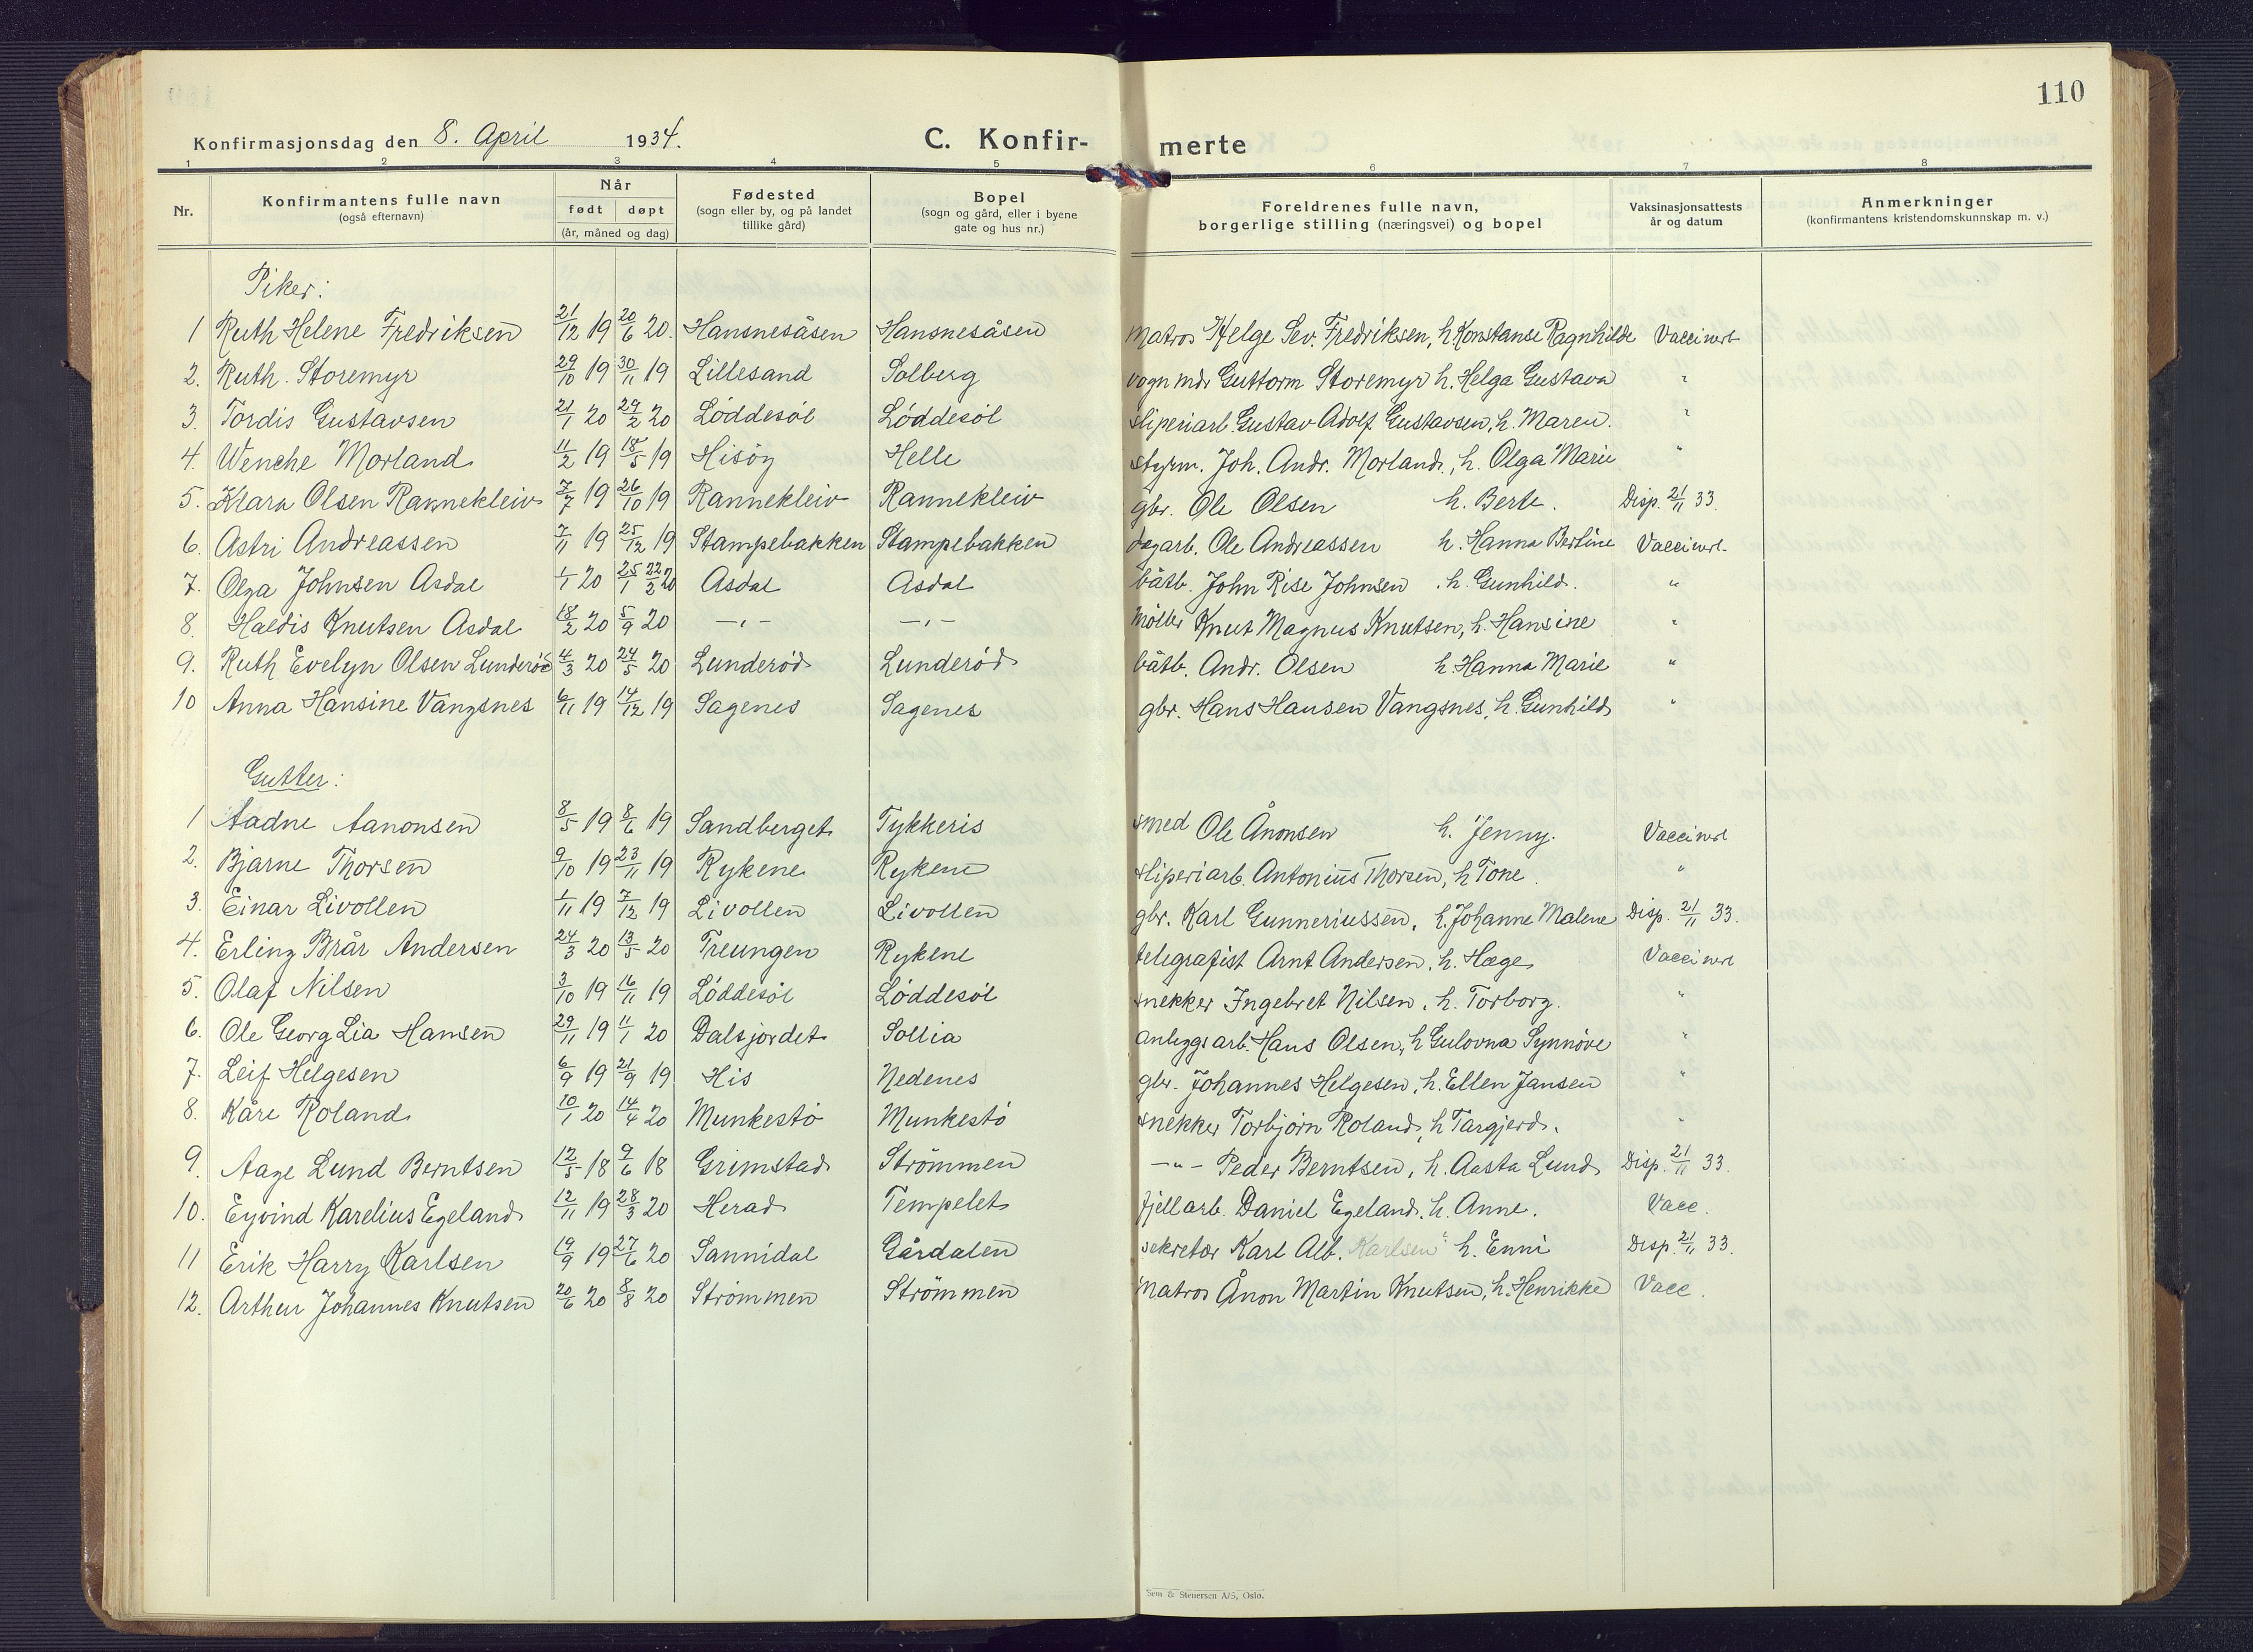 110
Konfirmasjonsdag den 8. April 1934. C. Konfir- merte
1 2 3 4 5 6 7 8
Nr. Konfirmantens fulle navn (også efternavn) Når født døpt (år, måned og dag) Fødested (sogn eller by, og på landet tillike gård) Bopel (sogn og gård, eller i byene gate og hus nr.) Foreldrenes fulle navn, borgerlige stilling (næringsvei) og bopel Vaksinasjonsattests år og datum Anmerkninger (konfirmantens kristendomskunnskap m. v.)
Piker:
1 Ruth Helene Fredriksen 21/12 19 20/6 20. Hansnesåsen Hansnesåsen Matros Helge Sev. Fredriksen, h. Konstanse Ragnhilde Vaccinert
2. Ruth Storemyr 29/10 19 30/11 19 Lillesand Solberg vognmdr Guttorm Storemyr h. Helga Gustava "
3. Tordis Gustavsen 21/1 20 29/2 20 Løddesøl Løddesøl sliperiarb. Gustav Adolf Gustavsen, h. Maren. "
4. Wenche Morland 11/2 19 18/5 19 Hisöy Helle styrm. Joh. Andr. Morland, h. Olga Marie "
5. Klara Olsen Rannekleiv 7/7 19 26/10 19 Rannekleiv Rannekleiv gbr. Ole Olsen h. Berte. Disp. 21/11 33.
6. Astri Andreassen 7/11 19 25/12 19 Stampebakken Stampebakken dagarb. Ole Andreassen h. Hanna Bertine Vaccinert.
7. Olga Johnsen Asdal 1/1 20 25/1 22/2 20 Asdal Asdal båtb. John Rise Johnsen h. Gunhild. "
8. Haldis Knutsen Asdal 18/2 20 5/9 20 — " — — " — Møller Knut Magnus Knutsen, h. Hansine "
9. Ruth Evelyn Olsen Lunderød 4/3 20 24/5 20 Lunderød Lunderød båtb. Andr. Olsen h. Hanna Marie "
10 Anna Hansine Vangsnes 6/11 19 14/12 19 Sagenes Sagenes gbr. Hans Hansen Vangsnes, h. Gunhild "
Gutter:
1 Aadne Aanonsen 8/5 19 8/6 19 Sandberget Tykkeris smed Ole Ånonsen h. Jenny. Vaccinert
2. Bjarne Thorsen 9/10 19 23/11 19 Rykene Rykene sliperiarb. Antonius Thorsen, h Tone. "
3. Einar Livollen 1/11 19 7/12 19 Livollen Livollen gbr. Karl Gunneriussen, h. Johanne Malene Disp. 21/11 33.
4. Erling Brår Andersen 24/3 20 13/5 20 Treungen Rykene telegrafist Arnt Andersen, h. Hæge Vaccinert
5. Olaf Nilsen 3/10 19 16/11 19 Løddesøl Løddesøl snekker Ingebret Nilsen, h. Torborg. "
6. Ole Georg Lia Hansen 29/11 19 11/1 20 Dalsjordet Sollia anleggsarb. Hans Olsen, h Gulovna Synnøve "
7. Leif Helgesen 6/9 19 21/9 19 His Nedenes gbr. Johannes Helgesen, h. Ellen Jansen "
8. Kåre Roland 10/1 20 14/4 20 Munkestö Munkestö snekker Torbjørn Roland, h Targjerd. "
9. Aage Lund Berntsen 12/5 18 9/6 18 Grimstad Strömmen — " — Peder Berntsen, h. Aasta Lund Disp. 21/11 33.
10. Eyvind Karelius Egeland 12/11 19 28/3 20 Herad Tempelet fjellarb. Daniel Egeland. h. Anne. Vacc.
11 Erik Harry Karlsen 19/9 19 27/6 20 Sannidal Gårdalen sekretær Karl Alb. Karlsen h. Enni Disp. 21/11 33.
12. Arthur Johannes Knutsen 20/6 20 8/8 20 Strömmen Strömmen Matros Ånon Martin Knutsen, h. Henrikke Vacc.
Sem & Stenersen A/S, Oslo.